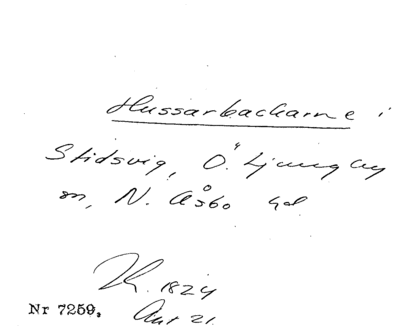 Hussarbackarne i
Stidsvig, Ö. Ljungby
sn, N. Åsbo hd
1824
Nr 7259,